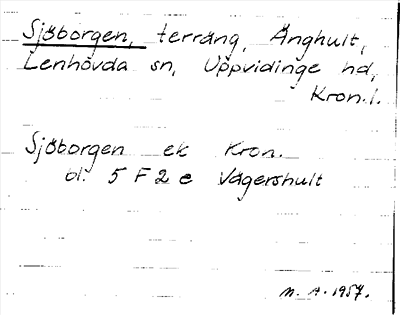 Sjöborgen, terräng, Änghult,
Lenhövda sn, Uppvidinge hd,
Kron.l.
Sjöborgen ek Kron.
bl. 5 F 2 e Vägershult
M. A. 1957.